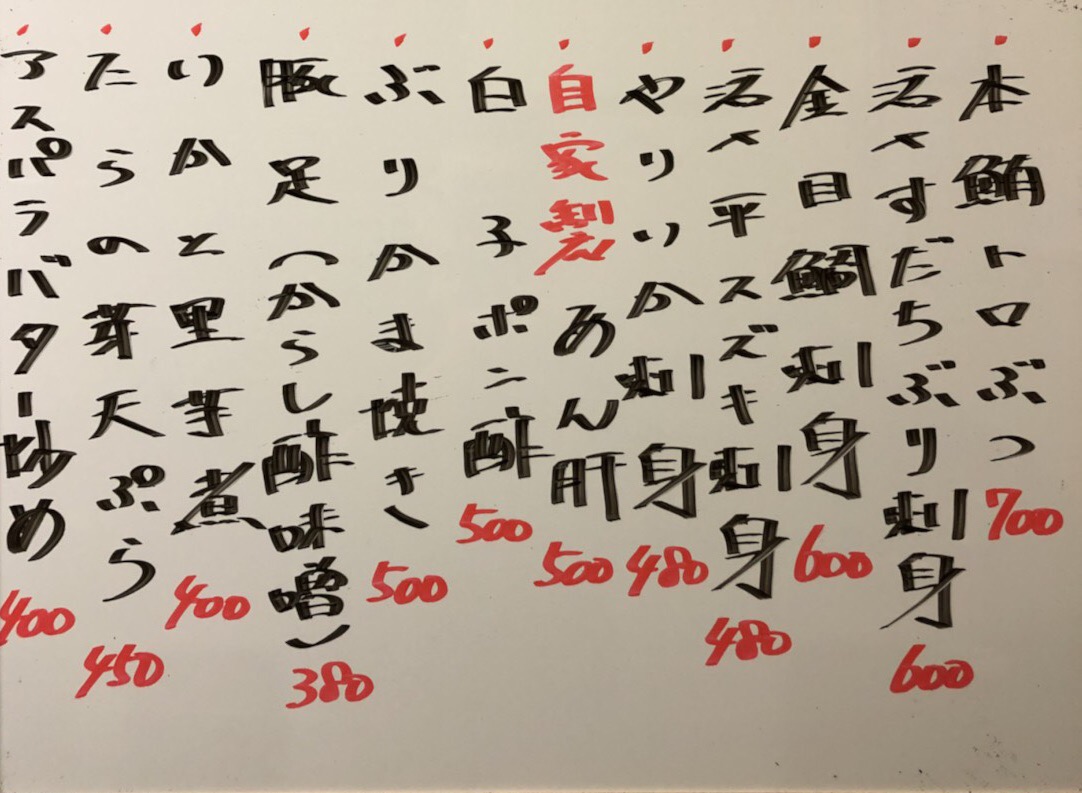 本鮪トロぶつ 700
活〆すだちぶり刺身 600
金目鯛刺身 600
活〆平スズキ刺身 480
やりいか刺身 480
自家製あん肝 500
白子ポン酢 500
ぶりかま焼き 500
豚足(からし酢味噌) 380
いかと里芋煮 400
たらの芽天ぷら 450
アスパラバター炒め 400